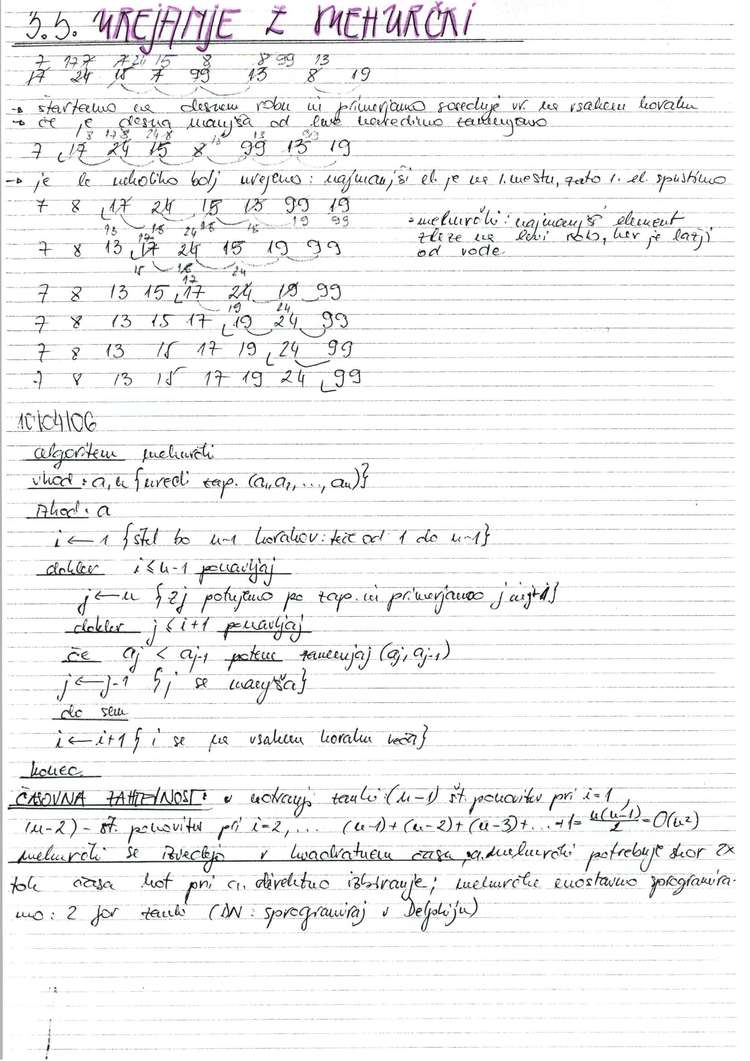 3.5. UREJANJE Z MEHURČKI
7 17 7 7 24 15 8 8 99 13
17 24 15 7 99 13 8 19
→ štartamo na desnem robu in primerjamo sosednje vr. na vsakem koraku
→ če je desna manjša od leve naredimo zamenjavo
8 17 8 24 8 15 13
7 17 24 15 8 99 13 19
→ je le nekoliko bolj urejeno: najmanjši el. je na 1. mestu, zato 1. el. spustimo
7 8 17 24 15 13 99 19
13 15 24 15 19 99
• mehurčki: najmanjši element
zleze na levi rob, ker je lažji
od vode.
17
7 8 13 17 24 15 19 99
15 24
17
7 8 13 15 17 24 19 99
19 24
7 8 13 15 17 19 24 99
7 8 13 15 17 19 24 99
7 8 13 15 17 19 24 99
10/04/06
algoritem mehurčki
vhod: a, n {uredi zap. (a₁, a₂, ..., aₙ)}
izhod: a
i ← 1 {štel bo n-1 korakov: teče od 1 do n-1}
dokler i ≤ n-1 ponavljaj
j ← n {z j potujemo po zap. in primerjamo j in j-1}
dokler j ≤ i+1 ponavljaj
če aj < aj-1 potem zamenjaj (aj, aj-1)
j ← j-1 {j se manjša}
do sem
i ← i+1 {i se na vsakem koraku veča}
konec
ČASOVNA ZAHTEVNOST: v notranji zanki: (n-1) št. ponovitev pri i=1,
(n-2) - št. ponovitev pri i=2, ... (n-1)+(n-2)+(n-3)+...+1= n(n-1)/2 =O(n²)
mehurčki se izvedejo v kvadratnem času, a. mehurčki potrebuje skor 2x
tolk časa kot pri a. direktno izbiranje; mehurčke enostavno sprogramira-
mo: 2 for zanki (DN: sprogramiraj v Delphiju)